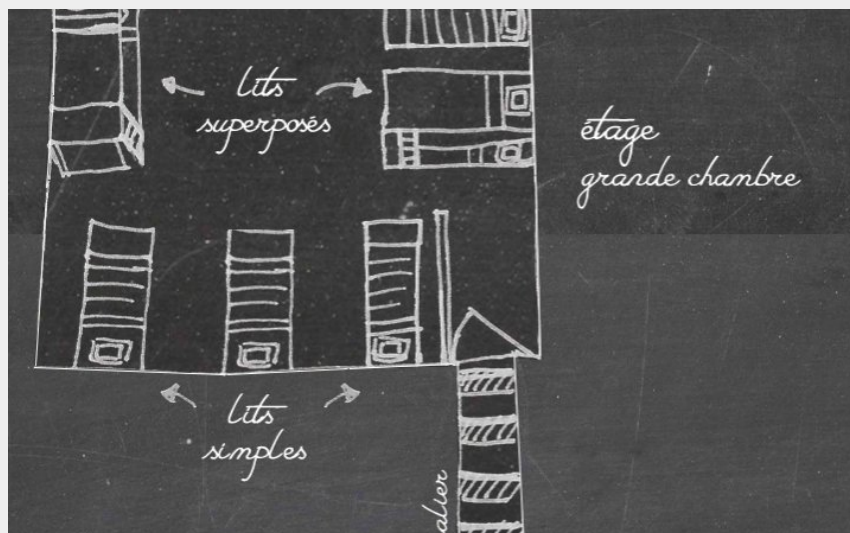 lits
superposés
étage
grande chambre
lits
simples
alier